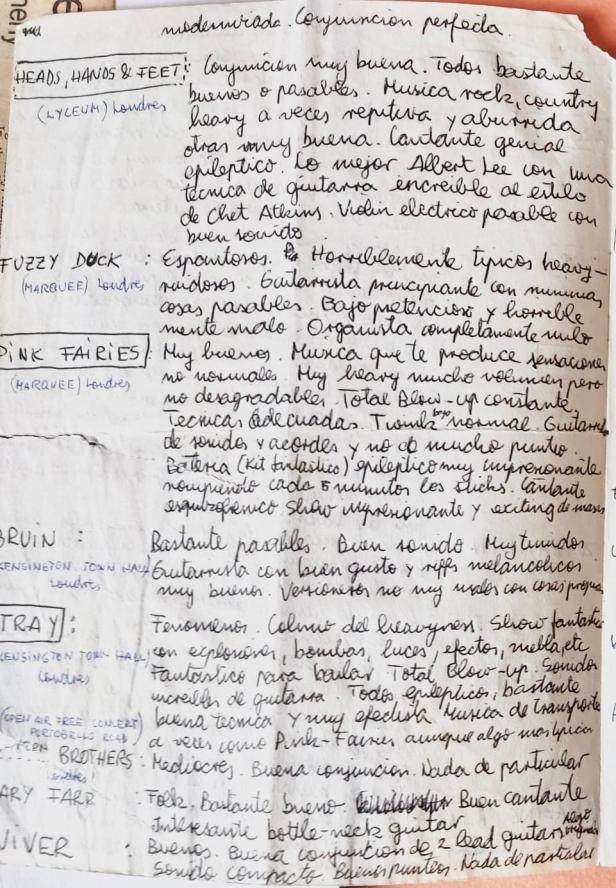 modernizada. Conjuncion perfecta.
HEADS, HANDS & FEET: Conjuncion muy buena. Todos bastante
(LYCEUM) Londres buenos o pasables. Musica rock, country
heavy a veces repetitiva y aburrida
otras muy buena. Cantante genial
epileptico. Lo mejor Albert Lee con una
tecnica de guitarra increible al estilo
de Chet Atkins. Violin electrico pasable con
buen sonido
FUZZY DUCK : Espantosos. Horriblemente tipicos heavy-
(MARQUEE) Londres ruidosos. Guitarrista principiante con
cosas pasables. Bajo pretencioso y horrible
mente malo. Organista completamente nulo
PINK FAIRIES: Muy buenos. Musica que te produce sensaciones
(MARQUEE) Londres no normales. Muy heavy mucho volumen pero
no desagradables. Total Blow-up constante,
Tecnicas adecuadas. Twink bajo normal. Guitarra
de sonidos y acordes y no de mucho punteo.
Bateria (Kit fantastico) epileptico muy impresionante
rompiendo cada 5 minutos los sticks. Cantante
esquizofrenico. Show impresionante y exciting de masas
BRUIN : Bastante pasables. Buen sonido. Muy timidos
KENSINGTON TOWN HALL Guitarrista con buen gusto y riffs melancolicos
Londres muy buenos. Versioneros no muy malos con cosas propias
TRAY: Fenomenos. Colmo del heavyness. Show fantastico
KENSINGTON TOWN HALL) con explosiones, bombas, luces, efectos, niebla, etc
Londres Fantastico para bailar Total Blow-up. Sonidos
increibles de guitarra. Todos epilepticos, bastante
(OPEN AIR FREE CONCERT) buena tecnica y muy efectista Musica de transporte
PORTOBELLO ROAD a veces como Pink-Fairies aunque algo mas tipica
BROTHERS : Mediocres. Buena conjuncion. Nada de particular
Londres
ARY FARR : Folk. Bastante bueno. Buen cantante
Interesante bottle-neck guitar
VIVER : Buenos. Buena conjuncion de 2 lead guitars Algo
Sonido compacto Buenos punteos. Nada de particular